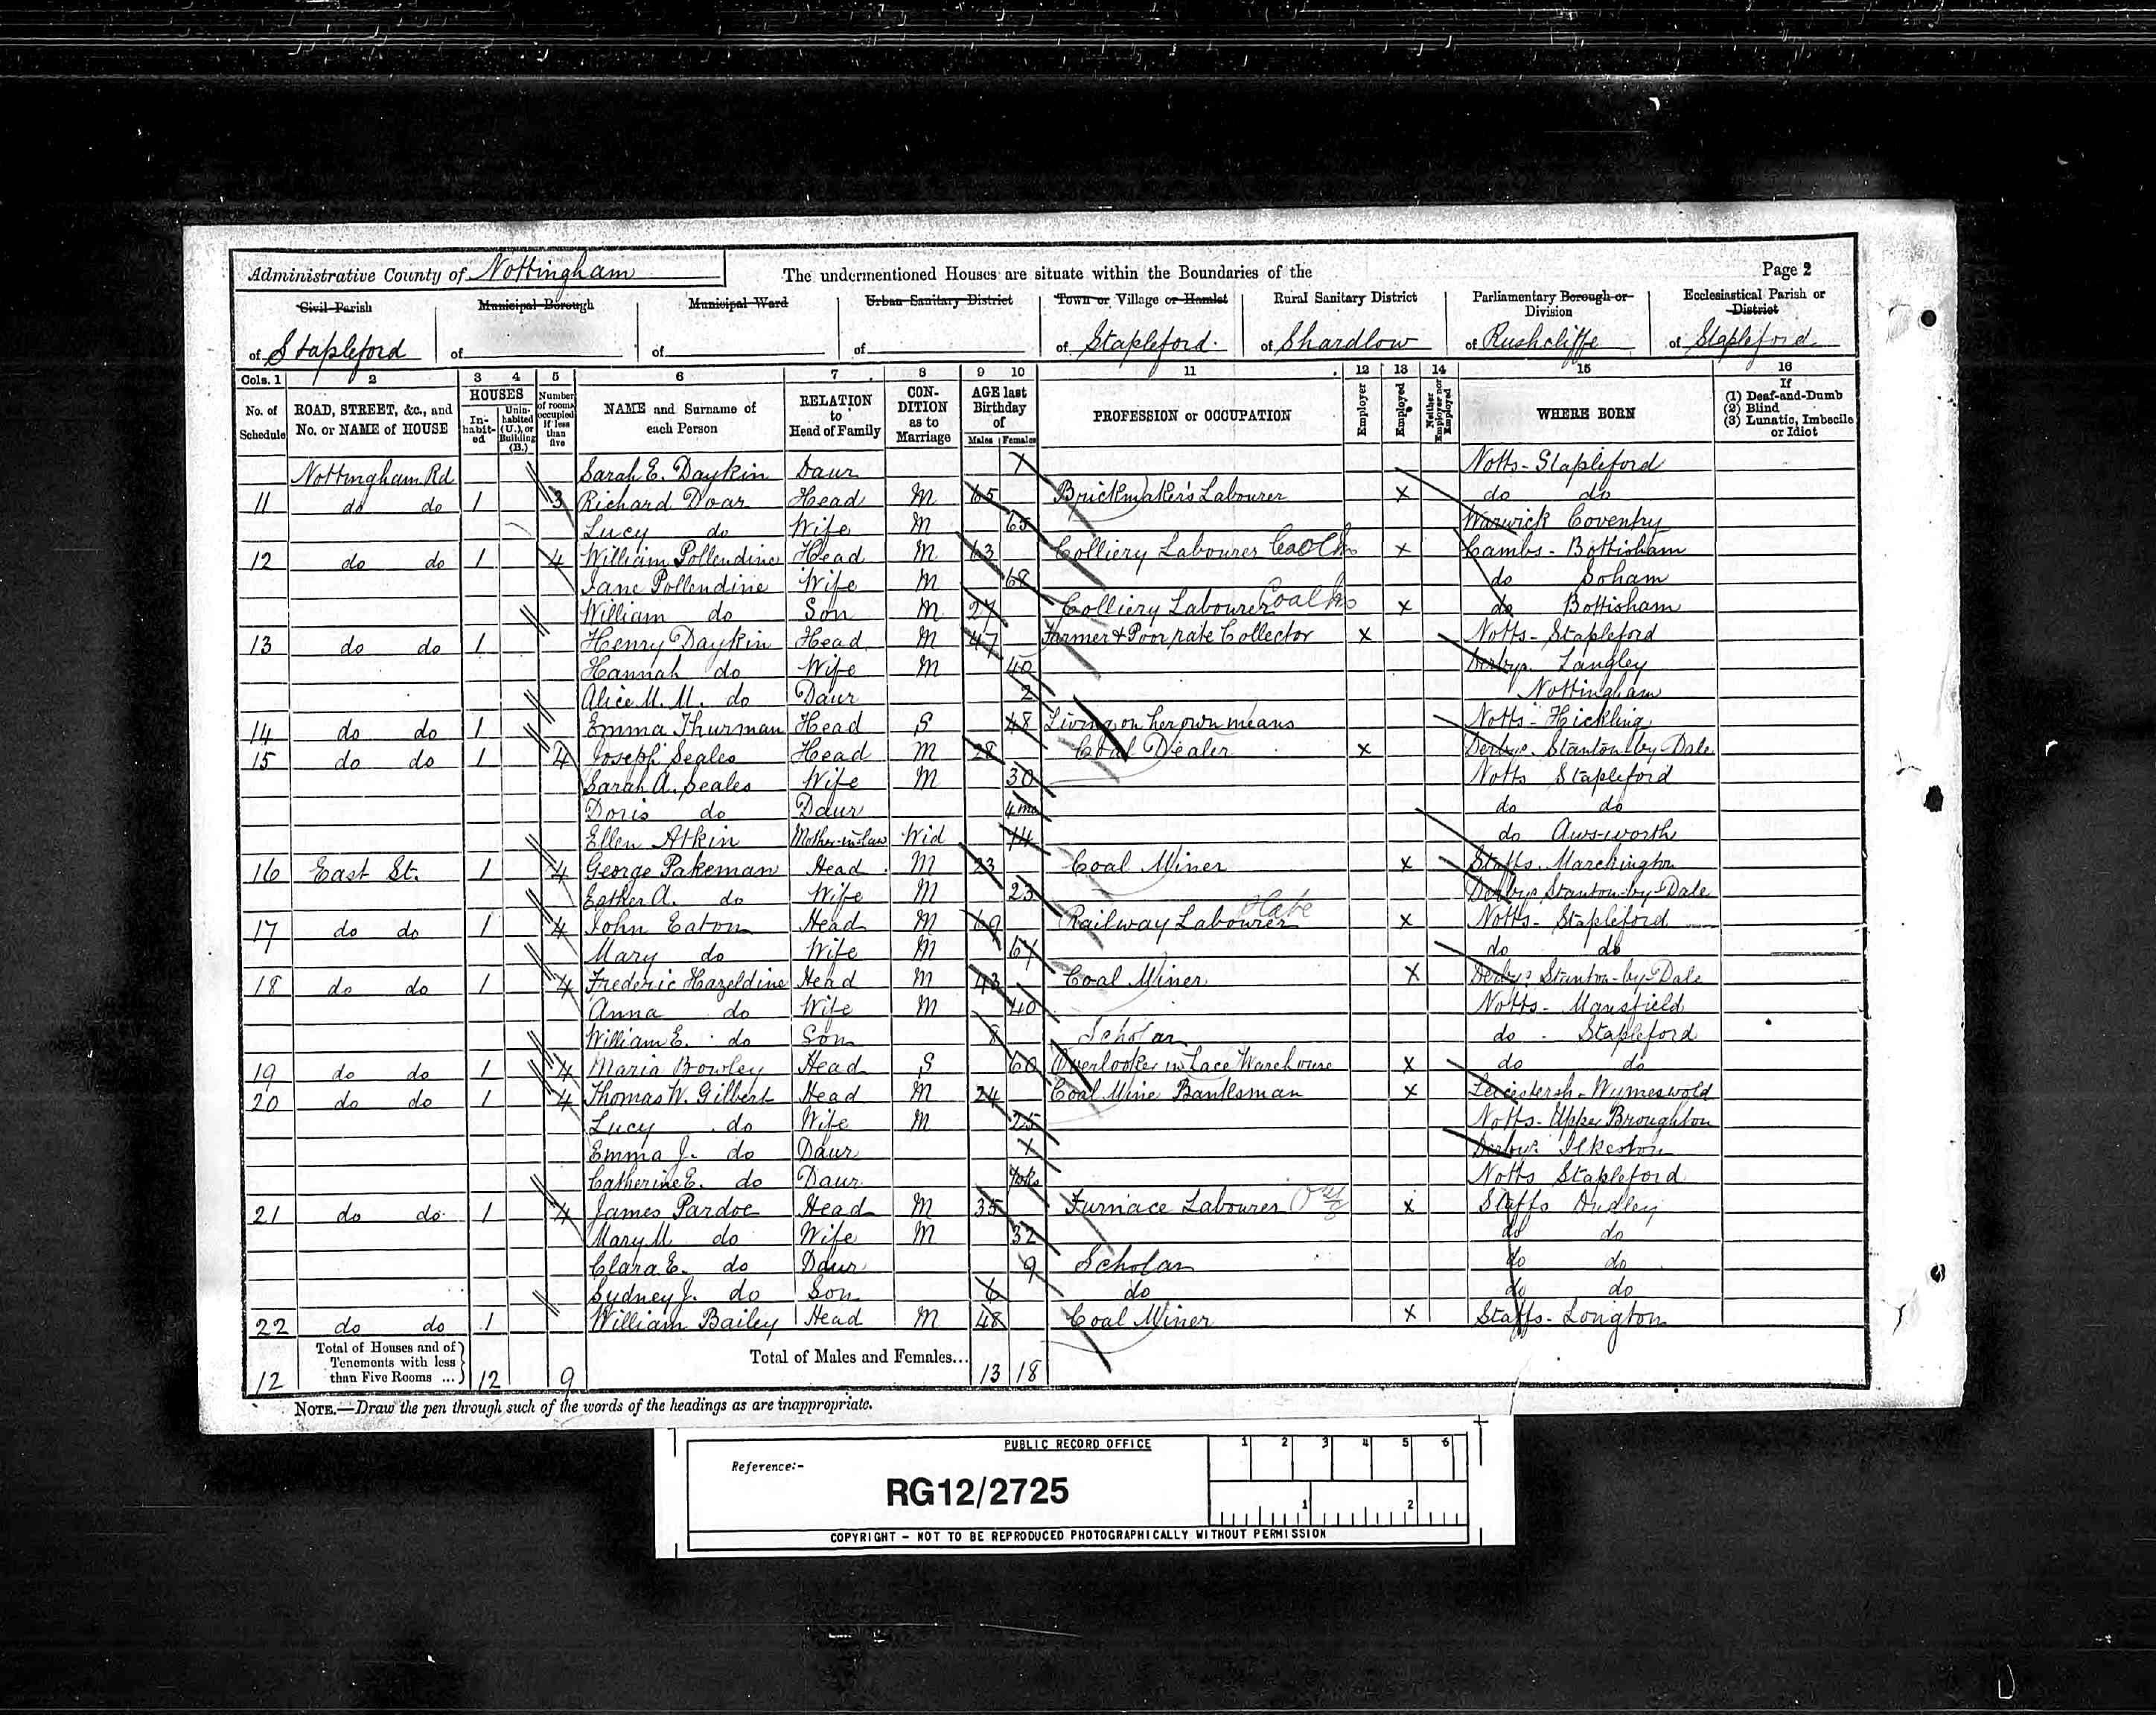 Administrative County of Nottingham The undermentioned Houses are situate within the Boundaries of the Page 2
Civil Parish Municipal Borough Municipal Ward Urban Sanitary District Town or Village or Hamlet Rural Sanitary District Parliamentary Borough or Division Ecclesiastical Parish or District
of Stapleford of of of of Stapleford. of Shardlow of Rushcliffe of Stapleford
Cols. 1 2 3 4 5 6 7 8 9 10 11 12 13 14 15 16
No. of Schedule ROAD, STREET, &c., and No. or NAME of HOUSE HOUSES Inhabited Uninhabited (U.), or Building (B.) Number of rooms occupied if less than five NAME and Surname of each Person RELATION to Head of Family CONDITION as to Marriage AGE last Birthday of Males Females PROFESSION or OCCUPATION Employer Employed Neither Employer nor Employed WHERE BORN If (1) Deaf-and-Dumb (2) Blind (3) Lunatic, Imbecile or Idiot
Nottingham Rd Sarah E. Daykin Daur Notts - Stapleford
11 do do 1 3 Richard Doar Head M 65 Brickmaker's Labourer X do do
Lucy do Wife M 65 Warwick Coventry
12 do do 1 4 William Pollendine Head M 63 Colliery Labourer X Cambs - Bottisham
Jane Pollendine Wife M 68 do Soham
William do Son M 27 Colliery Labourer X do Bottisham
13 do do 1 Henry Daykin Head M 47 Farmer & Poor rate Collector X Notts - Stapleford
Hannah do Wife M 40 Derbys. Langley
Alice M. M. do Daur 2 Nottingham
14 do do 1 Emma Thurman Head S 48 Living on her own means Notts - Hickling
15 do do 1 4 Joseph Seales Head M 28 Coal Dealer X Derbys. Stanton-by-Dale
Sarah A. Seales Wife M 30 Notts Stapleford
Doris do Daur 4 mo do do
Ellen Atkin Mother-in-law Wid do Awsworth
16 East St. 1 4 George Pakeman Head M 23 Coal Miner X Staffs. Marchington
Esther A. do Wife M 23 Derbys Stanton-by-Dale
17 do do 1 4 John Eaton Head M 69 Railway Labourer X Notts - Stapleford
Mary do Wife M do do
18 do do 1 4 Frederic Hazeldine Head M 43 Coal Miner X Derbys Stanton-by-Dale
Anna do Wife M 40 Notts - Mansfield
William E. do Son 8 Scholar do - Stapleford
19 do do 1 4 Maria Bowley Head S 60 Overlooker in Lace Warehouse X do do
20 do do 1 4 Thomas W. Gilbert Head M 24 Coal Mine Banksman X Leicestersh - Wymeswold
Lucy do Wife M 25 Notts - Upper Broughton
Emma J. do Daur Derbys Ilkeston
Catherine E. do Daur Notts Stapleford
21 do do 1 4 James Pardoe Head M 35 Furnace Labourer X Staffs Dudley
Mary M do Wife M 32 do do
Clara E. do Daur 9 Scholar do do
Sydney J. do Son 6 do do do
22 do do 1 William Bailey Head M 48 Coal Miner X Staffs - Longton
12 Total of Houses and of Tenements with less than Five Rooms ... 12 9 Total of Males and Females... 13 18
NOTE.—Draw the pen through such of the words of the headings as are inappropriate.
PUBLIC RECORD OFFICE 1 2 3 4 5 6
Reference:-
RG12/2725 1 2
COPYRIGHT - NOT TO BE REPRODUCED PHOTOGRAPHICALLY WITHOUT PERMISSION